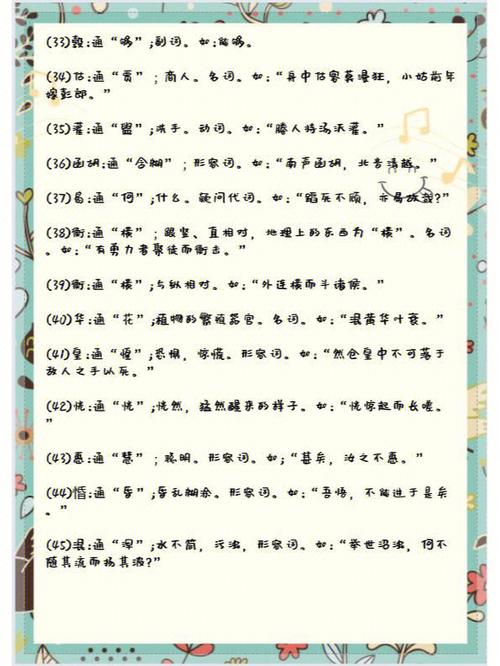 (33)彀:通“够”;副词。如:能够。
(34)估:通“贾”；商人。名词。如:“舟中估客莫漫狂，小姑前年
嫁彭郎。”
(35)灌:通“盥”;洗手。动词。如:“媵人持汤沃灌。”
(36)函胡:通“含糊”；形容词。如:“南声函胡，北音清越。”
(37)曷:通“何”;什么。疑问代词。如:“蹈死不顾，亦曷故哉?”
(38)衡:通“横”；跟竖、直相对，地理上的东西为“横”。名词
。如:“有勇力者聚徒而衡击。”
(39)衡:通“横”;与纵相对。如:“外连横而斗诸侯。”
(40)华:通“花”;植物的繁殖器官。名词。如:“混黄华叶衰。”
(41)皇:通“惶”;恐惧，惊慌。形容词。如:“然仓皇中不可落于
敌人之手以死。”
(42)恍:通“恍”;恍然，猛然醒来的样子。如:“恍惊起而长嗟。
”
(43)惠:通“慧”；聪明。形容词。如;“甚矣，汝之不惠。”
(44)惛:通“昏”;昏乱糊涂。形容词。如:“吾惛，不能进于是矣
。”
(45)混:通“浑”;水不简，污浊，形容词。如:“举世混浊，何不
随其流而扬其波?”